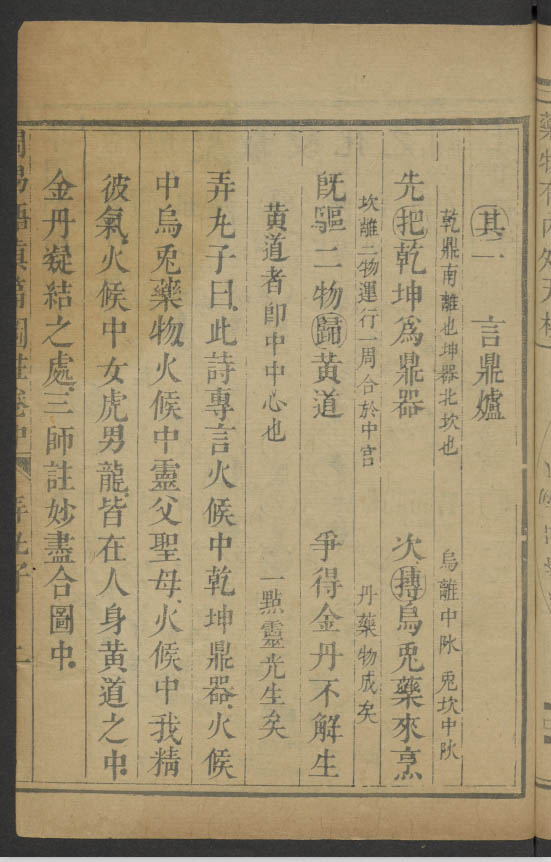 其二 言鼎爐
乾鼎南離也坤器北坎也 烏離中 兔坎中
先把乾坤爲鼎器 次摶烏兎藥來烹
坎離二物運行一周合於中宫 丹藥物成矣
旣驅二物歸黃道 爭得金丹不解生
黃道者卽中中心也 一點靈光生矣
弄丸子曰此詩專言火候中乾坤鼎器火候
中烏兎藥物火候中靈父聖母火候中我精
彼氣火候中女虎男龍皆在人身黃道之中
金丹凝結之處三師註妙盡合圖中
易悟真篇圖註卷中 弄丸子 二